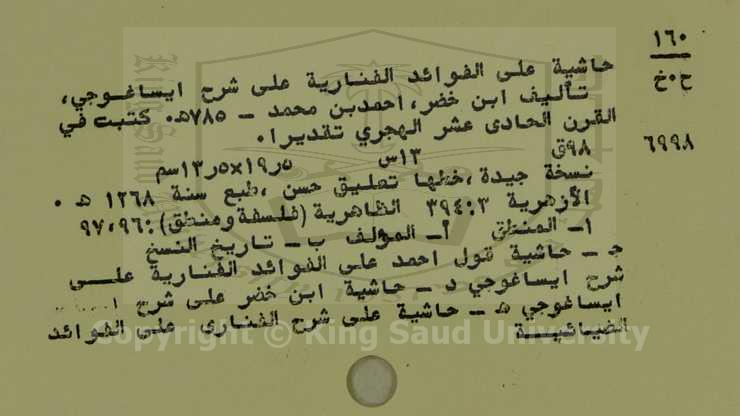 ١٦٠
ح٠خ
٦٩٩٨
حاشية على الفوائد الفنارية على شرح ايساغوجي،
تأليف ابن خضر، احمدبن محمد - ٧٨٥هـ٠ كتبت في
القرن الحادى عشر الهجري تقديرا٠
٩٨ق ١٣س ١٩٫٥x١٣٫٥سم
نسخة جيدة، خطها تعليق حسن، طبع سنة ١٢٦٨ هـ٠
الأزهرية ٣:٣٩٤ الظاهرية (فلسفة ومنطق):٩٦،٩٧
١- المنطق أ- المؤلف ب- تاريخ النسخ
جـ- حاشية قول احمد على الفوائد الفنارية علـــى
شرح ايساغوجي د- حاشية ابن خضر على شرح
ايساغوجي هـ- حاشية على شرح الفنارى على الفوائد
الضيائيــة
Copyright © King Saud University